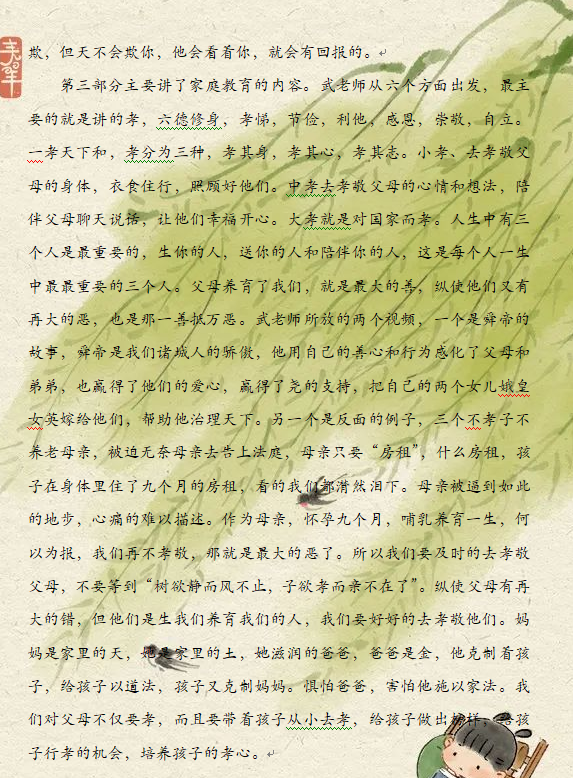 欺，但天不会欺你，他会看着你，就会有回报的。
第三部分主要讲了家庭教育的内容。武老师从六个方面出发，最主
要的就是讲的孝，六德修身，孝悌，节俭，利他，感恩，崇敬，自立。
一孝天下和，孝分为三种，孝其身，孝其心，孝其志。小孝、去孝敬父
母的身体，衣食住行，照顾好他们。中孝去孝敬父母的心情和想法，陪
伴父母聊天说话，让他们幸福开心。大孝就是对国家而孝。人生中有三
个人是最重要的，生你的人，送你的人和陪伴你的人，这是每个人一生
中最最重要的三个人。父母养育了我们，就是最大的善，纵使他们又有
再大的恶，也是那一善抵万恶。武老师所放的两个视频，一个是舜帝的
故事，舜帝是我们诸城人的骄傲，他用自己的善心和行为感化了父母和
弟弟，也赢得了他们的爱心，赢得了尧的支持，把自己的两个女儿娥皇
女英嫁给他们，帮助他治理天下。另一个是反面的例子，三个不孝子不
养老母亲，被迫无奈母亲去告上法庭，母亲只要“房租”，什么房租，孩
子在身体里住了九个月的房租，看的我们都潸然泪下。母亲被逼到如此
的地步，心痛的难以描述。作为母亲，怀孕九个月，哺乳养育一生，何
以为报，我们再不孝敬，那就是最大的恶了。所以我们要及时的去孝敬
父母，不要等到“树欲静而风不止，子欲孝而亲不在了”。纵使父母有再
大的错，但他们是生我们养育我们的人，我们要好好的去孝敬他们。妈
妈是家里的天，她是家里的土，她滋润的爸爸，爸爸是金，他克制着孩
子，给孩子以道法，孩子又克制妈妈。惧怕爸爸，害怕他施以家法。我
们对父母不仅要孝，而且要带着孩子从小去孝，给孩子做出榜样，给孩
子行孝的机会，培养孩子的孝心。